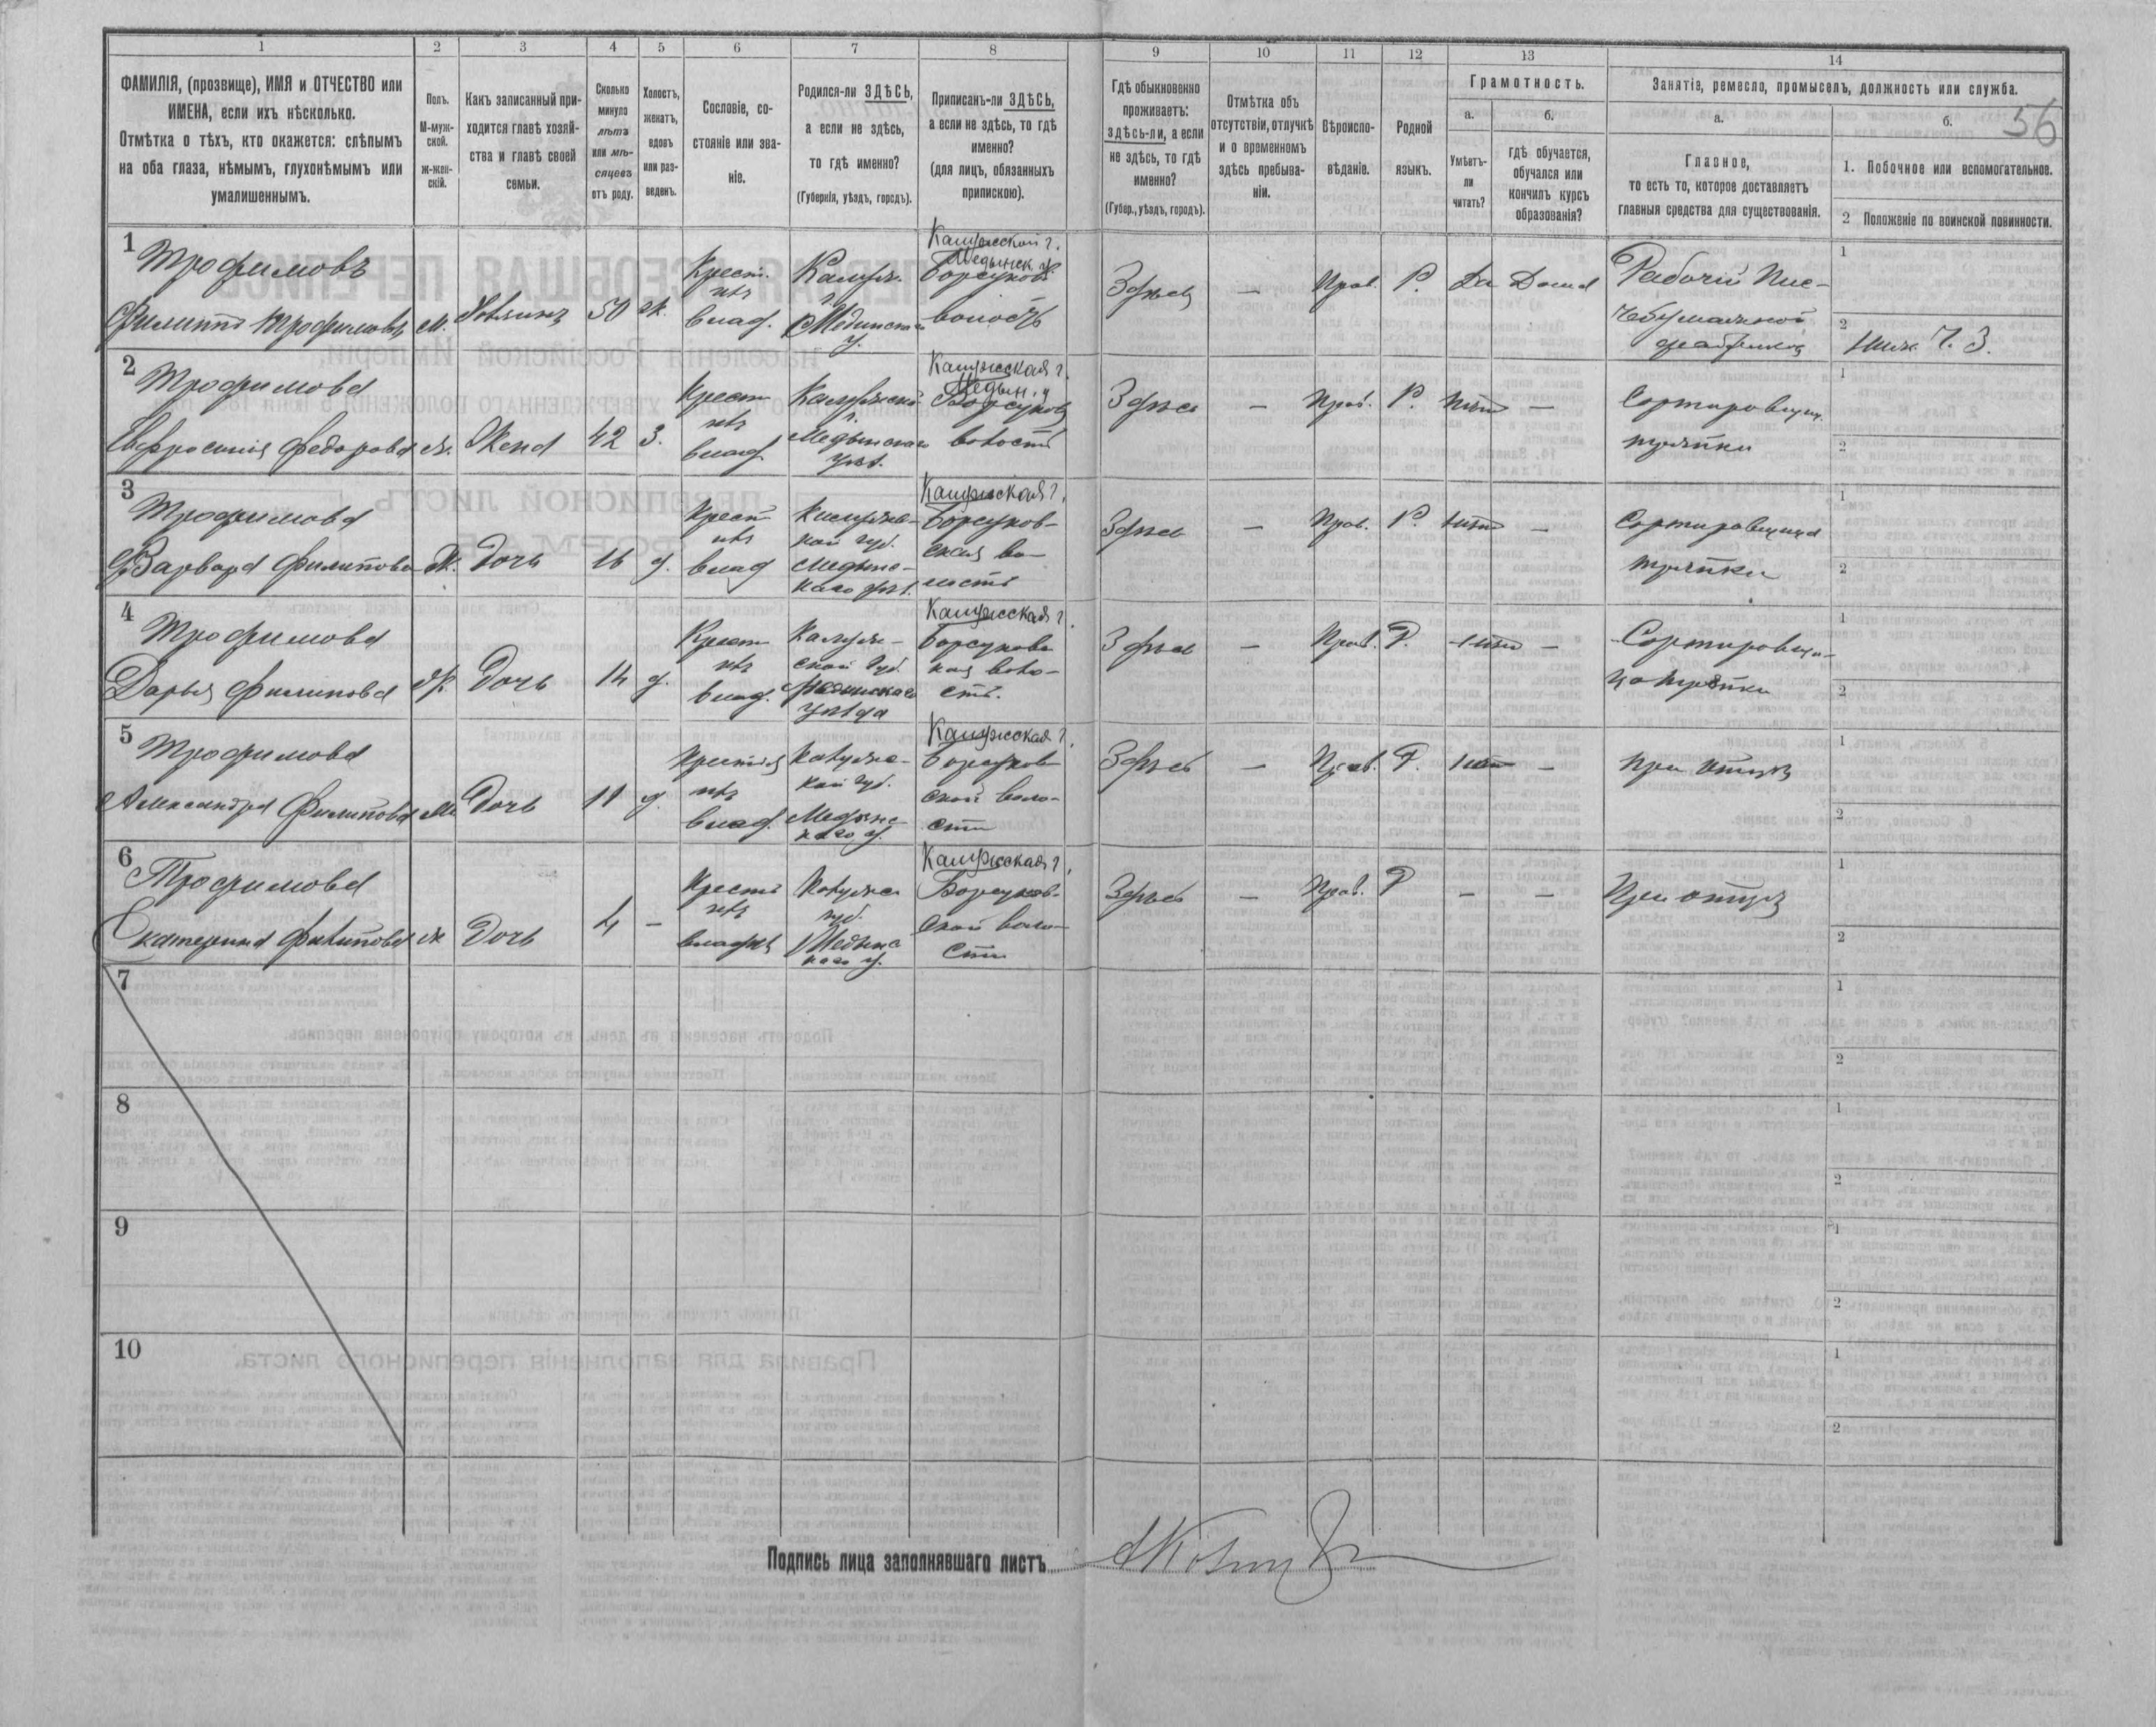 1 2 3 4 5 6 7 8 9 10 11 12 13 14
56
ФАМИЛІЯ, (прозвище), ИМЯ и ОТЧЕСТВО или
ИМЕНА, если ихъ нѣсколько.
Отмѣтка о тѣхъ, кто окажется: слѣпымъ
на оба глаза, нѣмымъ, глухонѣмымъ или
умалишеннымъ.
Полъ.
М-муж-
ской.
ж-жен-
скій.
Какъ записанный при-
ходится главѣ хозяй-
ства и главѣ своей
семьи.
Сколько
минуло
лѣтъ
или мѣ-
сяцевъ
отъ роду.
Холостъ,
женатъ,
вдовъ
или раз-
веденъ.
Сословіе, со-
стояніе или зва-
ніе.
Родился-ли ЗДѢСЬ,
а если не здѣсь,
то гдѣ именно?
(Губернія, уѣздъ, городъ).
Приписанъ-ли ЗДѢСЬ,
а если не здѣсь, то гдѣ
именно?
(для лицъ, обязанныхъ
припискою).
Гдѣ обыкновенно
проживаетъ:
здѣсь-ли, а если
не здѣсь, то гдѣ
именно?
(Губер., уѣздъ, городъ).
Отмѣтка объ
отсутствіи, отлучкѣ
и о временномъ
здѣсь пребыва-
ніи.
Вѣроиспо-
вѣданіе.
Родной
языкъ.
Грамотность.
а.
Умѣетъ-
ли
читать?
б.
гдѣ обучается,
обучался или
кончилъ курсъ
образованія?
Занятіе, ремесло, промыселъ, должность или служба.
а.
Главное,
то есть то, которое доставляетъ
главныя средства для существованія.
б.
1. Побочное или вспомогательное.
2 Положеніе по воинской повинности.
1
Трофимовъ
Филиппъ Трофимовъ
м.
Хозяинъ
50
ж.
Крест.
изъ
влад.
Калуж.
г.
Медынск
у.
Калужской г.
Медынск. у.
Борсуков.
волость
Здѣсь
—
Прав.
Р.
Да
Дома
Рабочій Пис-
чебумажной
фабрики
1
2
2
Трофимова
Евфросинія Федорова
ж.
Жена
42
З.
Крест
изъ
влад
Калужской
г.
Медынскаго
уѣз.
Калужская г.
Медын. у
Борсуков
волость
Здѣсь
—
Прав.
Р.
нѣт
—
Сортировщиц.
тряпки
1
2
3
Трофимова
Варвара Филипова
Ж.
Дочь
16
д.
Крест
изъ
влад
Калужс-
кой губ.
Медынс-
каго уѣз.
Калужская г.
Борсуков-
ская во-
лость
Здѣсь
—
Прав.
Р.
нѣт
—
Сортировщица
тряпки
1
2
4
Трофимова
Дарья Филипова
Ж.
Дочь
14
д.
Крест
изъ
влад.
Калуж-
ской Губ.
Медынскаго
уѣзда
Калужская г.
Борсуковс
кая воло-
сть.
Здѣсь
—
Прав.
Р.
нѣт
—
Сортировщи-
ца тряпки
1
2
5
Трофимова
Александра Филипова
Дочь
11
д.
изъ
влад.
Калужс-
кой губ.
Медынс-
каго у.
Калужская г.
Борсуков
ской воло-
сти
Здѣсь
—
Прав.
Р.
нѣт
—
При отцѣ
1
2
6
Трофимова
Екатерина Филипова
ж
Дочь
4
—
Крестя
изъ
Калужс
губ.
Медынс
каго у.
Калужская г.
Борсуков-
ской воло-
сти
Здѣсь
—
Прав.
Р
—
—
При отцѣ
1
2
7
1
2
8
1
2
9
1
2
10
1
2
Подпись лица заполнявшаго листъ